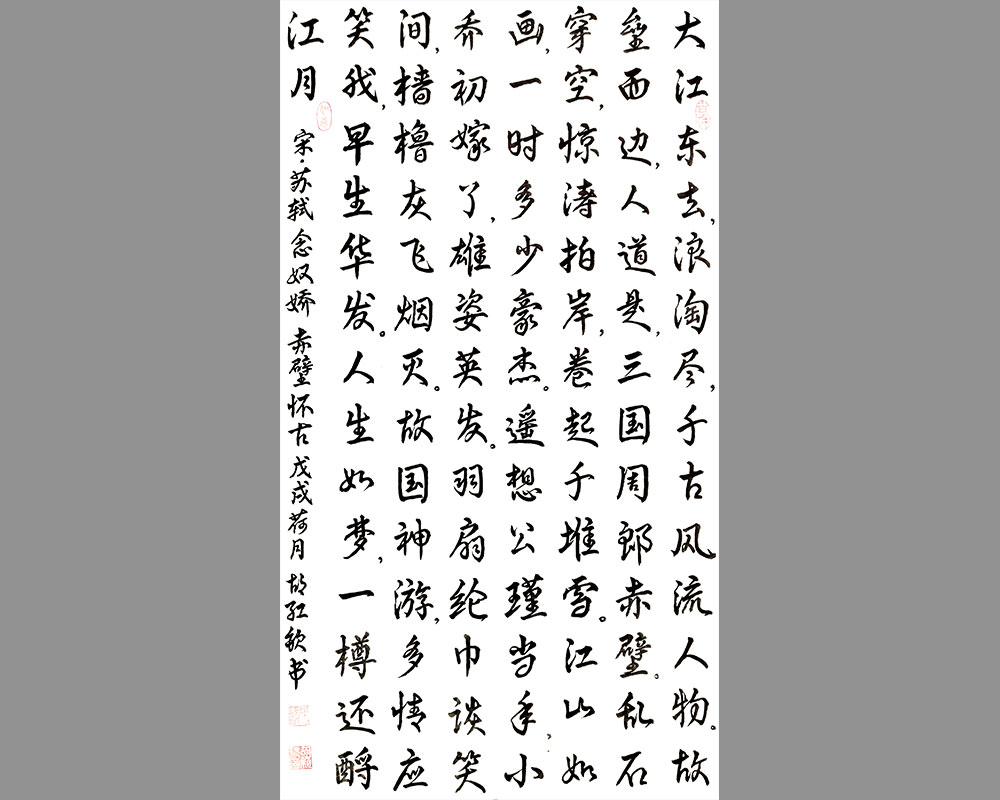 大江东去,浪淘尽,千古风流人物。故
垒西边,人道是,三国周郎赤壁。乱石
穿空,惊涛拍岸,卷起千堆雪。江山如
画,一时多少豪杰。遥想公瑾当年,小
乔初嫁了,雄姿英发。羽扇纶巾谈笑
间,樯橹灰飞烟灭。故国神游,多情应
笑我,早生华发。人生如梦,一樽还酹
江月 宋·苏轼 念奴娇 赤壁怀古 戊戌荷月 书